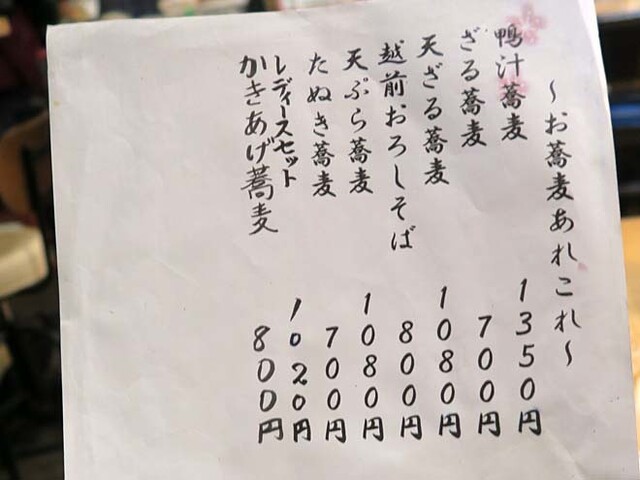 ～お蕎麦あれこれ～
鴨汁蕎麦 1350円
ざる蕎麦 700円
天ざる蕎麦 1080円
越前おろしそば 800円
天ぷら蕎麦 1080円
たぬき蕎麦 700円
レディースセット 1020円
かきあげ蕎麦 800円